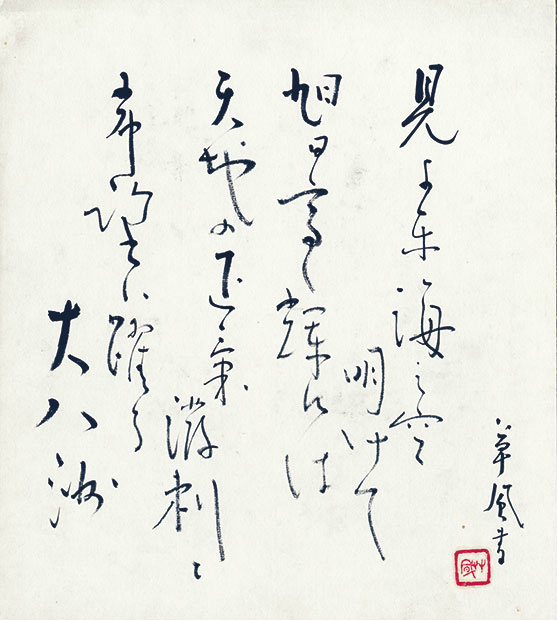 見よ東海之空
明けて
旭日高く
輝けは
天地の正気
溌剌と
希望は躍る
大八洲
草風書